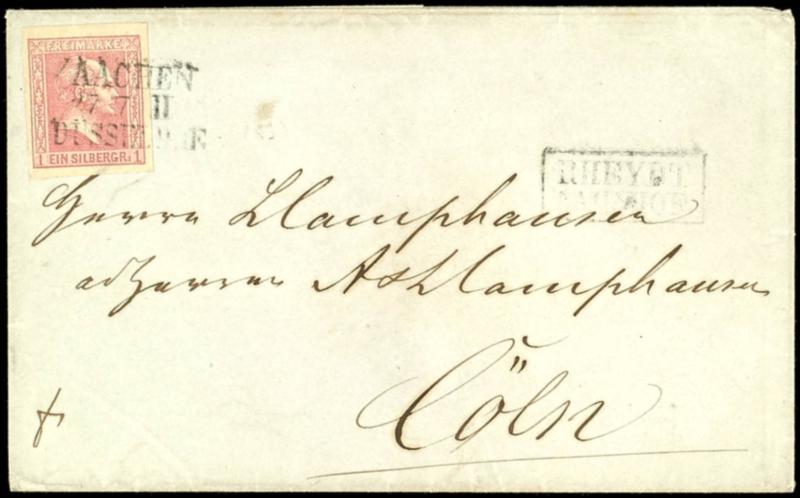 FREIMARKE
AACHEN
27 7 II
DÜSSELDORF
1 EIN SILBERGR. 1
RHEYDT
BAHNHOF
Herrn L Camphausen
ad Herren A & L Camphausen
Cöln